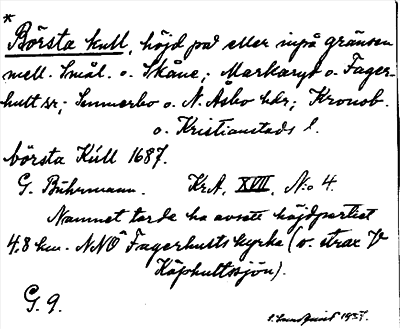 *
Börsta kull, höjd på eller inpå gränsen
mell. Smål. o. Skåne; Markaryd o. Fager-
hult sr; Sunnerbo o. N. Åsbo hdr; Kronob.
o. Kristianstads l.
börsta Kúll 1687.
G. Buhrmann. KrA. XVII, N:o 4.
Namnet torde ha avsett höjdpartiet
4.8 km. NNO Fagerhults kyrka (o. strax V
Käphultssjön).
G. 9.
S. Lundquist 1937.